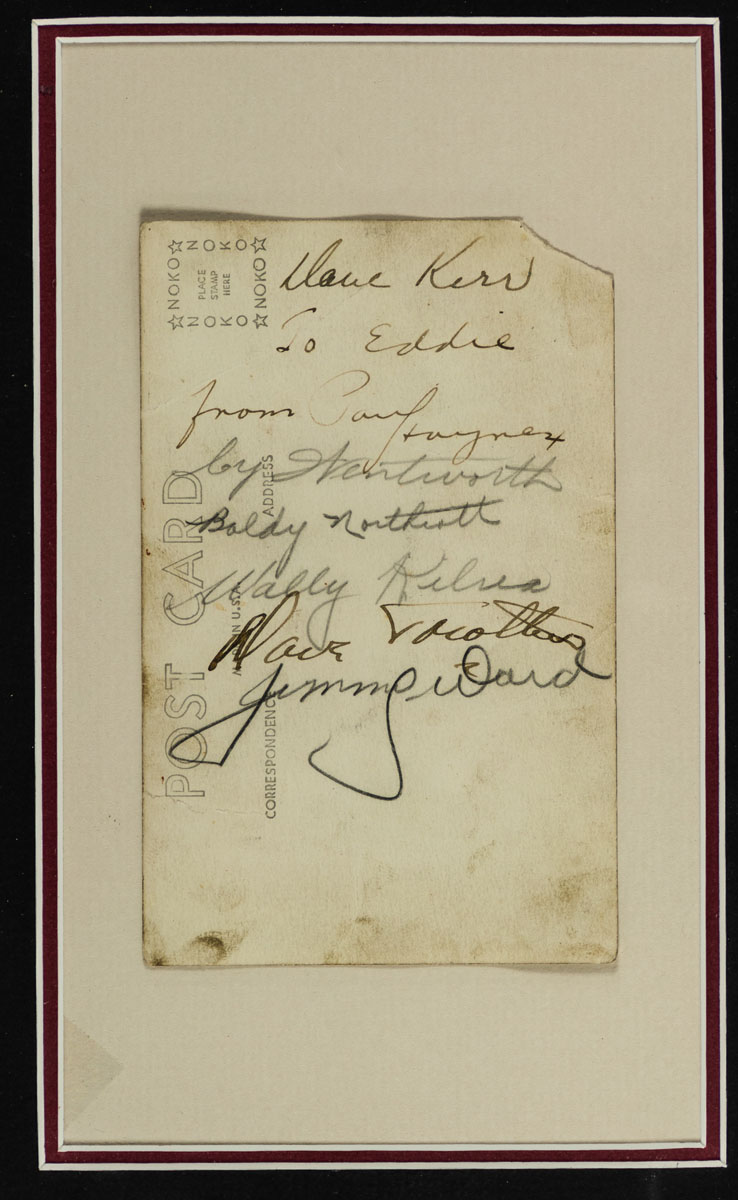 Dave Kerr
To Eddie
from Paul
Haynes
by Wentworth
Baldy Northcott
Wally Kilrea
Dave Trottier
Jimmy Ward
☆NOKO☆
NOKO
PLACE
STAMP
HERE
NOKO
☆NOKO☆
POST CARD
U.S.A.
CORRESPONDENC
ADDRESS